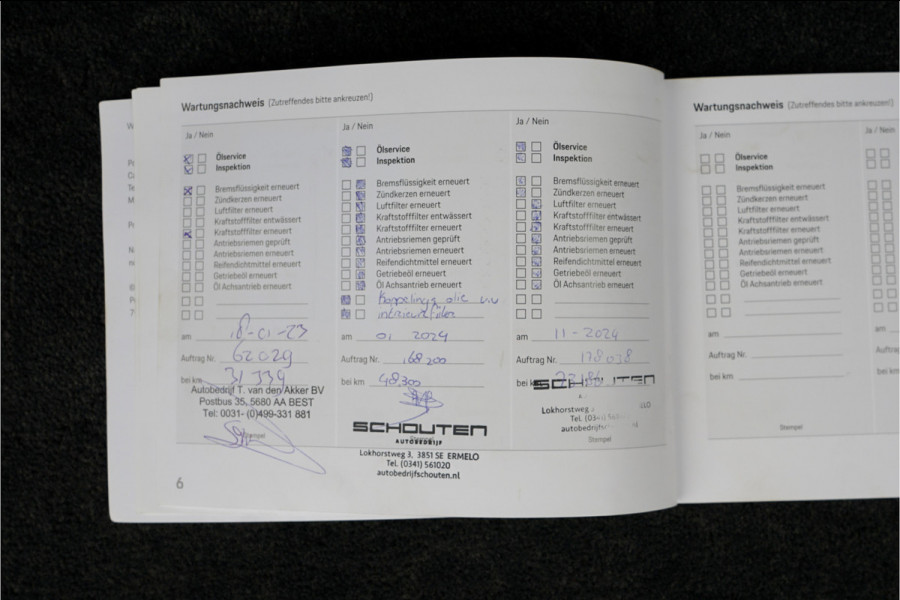 Wartungsnachweis (Zutreffendes bitte ankreuzen!)
Ja / Nein
Ölservice
Inspektion
Bremsflüssigkeit erneuert
Zündkerzen erneuert
Luftfilter erneuert
Kraftstofffilter entwässert
Kraftstofffilter erneuert
Antriebsriemen geprüft
Antriebsriemen erneuert
Reifendichtmittel erneuert
Getriebeöl erneuert
Öl Achsantrieb erneuert
am 18-01-23
Auftrag Nr. 62029
bei km 31 334
Autobedrijf T. van den Akker BV
Postbus 35, 5680 AA BEST
Tel: 0031- (0)499-331 881
Stempel
6
Ja / Nein
Ölservice
Inspektion
Bremsflüssigkeit erneuert
Zündkerzen erneuert
Luftfilter erneuert
Kraftstofffilter entwässert
Kraftstofffilter erneuert
Antriebsriemen geprüft
Antriebsriemen erneuert
Reifendichtmittel erneuert
Getriebeöl erneuert
Öl Achsantrieb erneuert
Koppelings olie
interieurfilter
am 01 2024
Auftrag Nr. 168200
bei km 48300
SCHOUTEN
AUTOBEDRIJF
Stempel
Lokhorstweg 3, 3851 SE ERMELO
Tel. (0341) 561020
autobedrijfschouten.nl
Ja / Nein
Ölservice
Inspektion
Bremsflüssigkeit erneuert
Zündkerzen erneuert
Luftfilter erneuert
Kraftstofffilter entwässert
Kraftstofffilter erneuert
Antriebsriemen geprüft
Antriebsriemen erneuert
Reifendichtmittel erneuert
Getriebeöl erneuert
Öl Achsantrieb erneuert
am 11-2024
Auftrag Nr. 178038
bei km
SCHOUTEN
Lokhorstweg
Tel.
Stempel
Wartungsnachweis (Zutreffendes bitte ankreuzen!)
Ja / Nein
Ölservice
Inspektion
Bremsflüssigkeit erneuert
Zündkerzen erneuert
Luftfilter erneuert
Kraftstofffilter entwässert
Kraftstofffilter erneuert
Antriebsriemen geprüft
Antriebsriemen erneuert
Reifendichtmittel erneuert
Getriebeöl erneuert
Öl Achsantrieb erneuert
am
Auftrag Nr.
bei km
Stempel
Ja / Nein
am
bei km